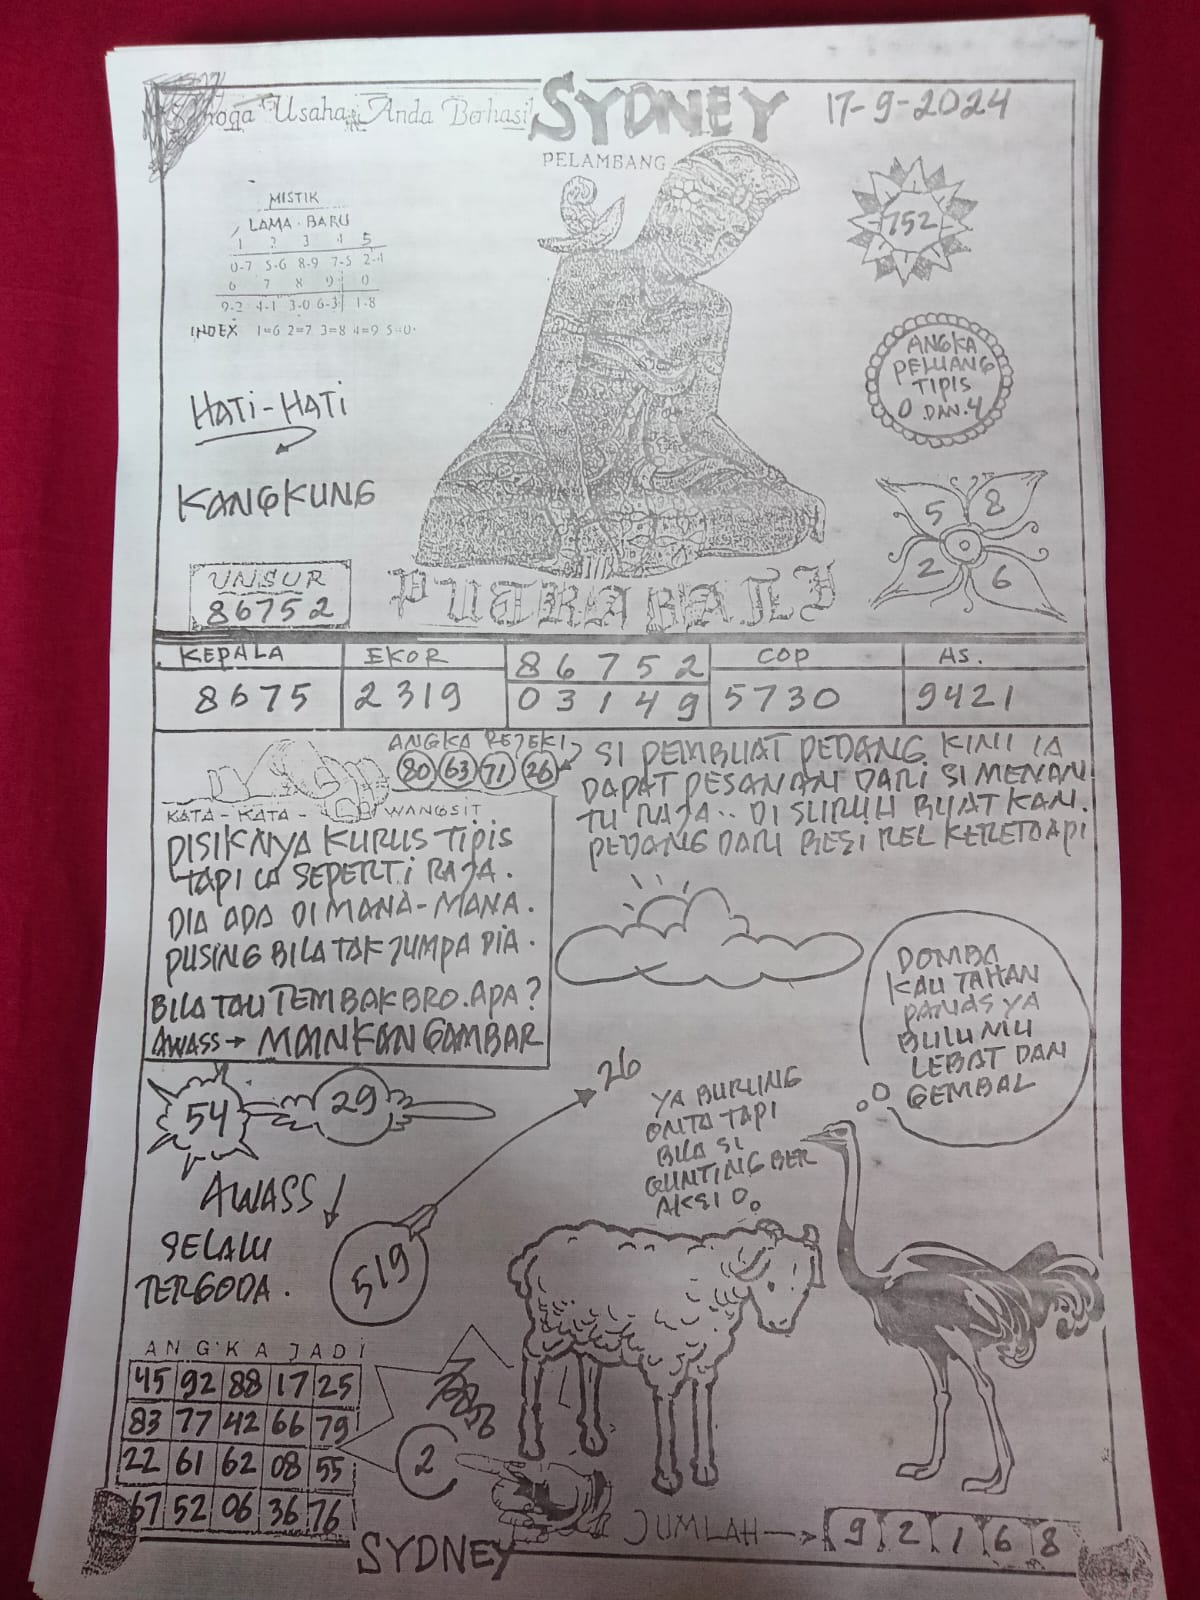 Semoga Usaha Anda Berhasil
SYDNEY
17-9-2024
PELAMBANG
MISTIK
LAMA - BARU
1 2 3 4 5
0-7 5-6 8-9 7-5 2-4
6 7 8 9 0
9-2 4-1 3-0 6-3 1-8
INDEX 1=6 2=7 3=8 4=9 5=0
752
ANGKA
PELUANG
TIPIS
0 DAN 4
HATI-HATI
KANGKUNG
5 8
2 6
UNSUR
86752
PUTRA BALI
KEPALA EKOR 86752 COP AS.
8675 2319 03149 5730 9421
ANGKA REJEKI
80 63 71 26
KATA - KATA - WANGSIT
PISIKNYA KURUS TIPIS
TAPI IA SEPERTI RAJA.
DIA ADA DI MANA-MANA.
PUSING BILA TAK JUMPA DIA.
BILA TAU TEMBAK BRO. APA?
AWASS → MAINKAN GAMBAR
SI PEMBUAT PEDANG KINI IA
DAPAT PESANAN DARI SI MENAN
TU RAJA.. DI SURUH BUATKAN.
PEDANG DARI BESI REL KERETO API
DOMBA
KAU TAHAN
PANAS YA
BULU MU
LEBAT DAN
GEMBAL
54
29
26
YA BURUNG
ONTA TAPI
BILA SI
GUNTING BER
AKSI
AWASS ↓
SELALU
TERGODA.
519
ANGKA JADI
45 92 88 17 25
83 77 42 66 79
22 61 62 08 55
67 52 06 36 76
2
SYDNEY
JUMLAH → 9 2 1 6 8